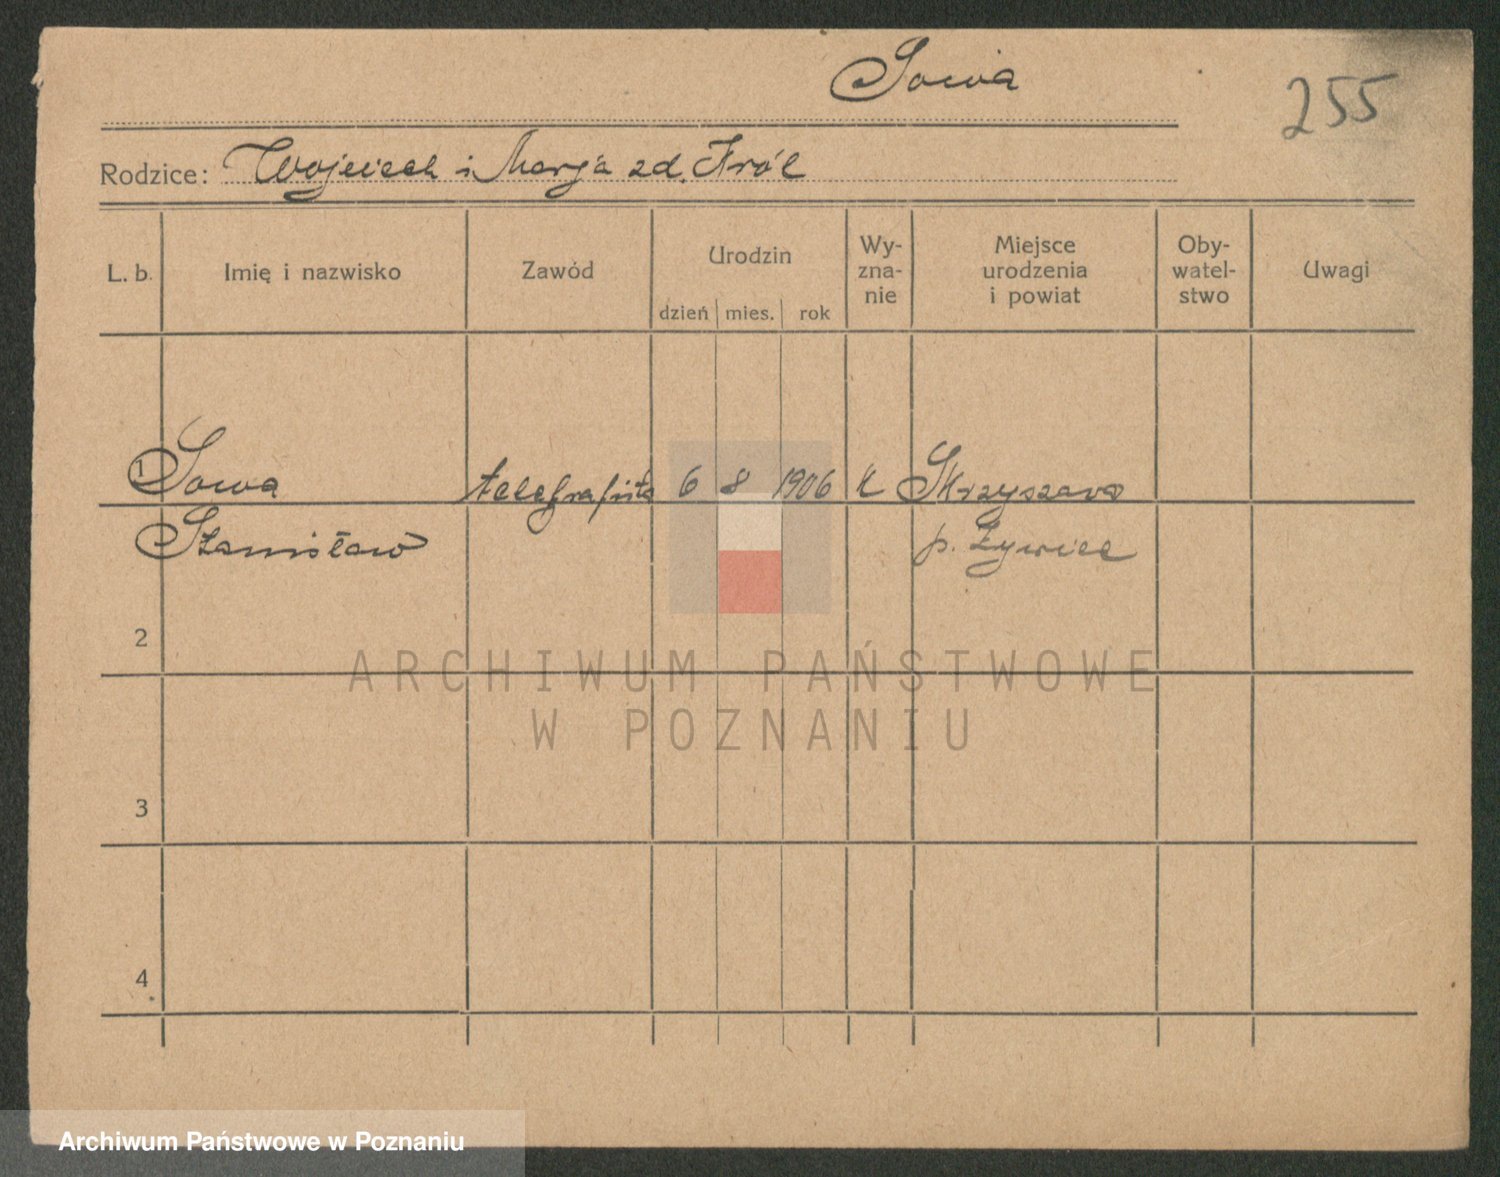 Sowa
255
Rodzice: Wojciech i Marja zd. Król
L. b. Imię i nazwisko Zawód Urodzin Wy- Miejsce Oby- Uwagi
zna- urodzenia watel-
nie i powiat stwo
dzień mies. rok
1 Sowa telegrafista 6 8 1906 k Skrzyszawa
Stanisław p. Żywiec
2
ARCHIWUM PAŃSTWOWE
W POZNANIU
3
4
Archiwum Państwowe w Poznaniu